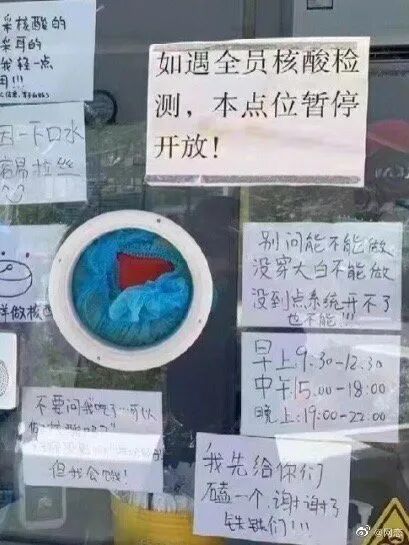 采核酸的
采耳的
我轻一点
用!!!
如遇全员核酸检
测，本点位暂停
开放！
因一下口水
容易拉丝
样做核
别问能不能做
没穿大白不能做
没到点系统开不了
也不能!!!
早上9:30-12:30
中午:15:00-18:00
晚上:19:00-22:00
不要问我吃了可以
但我会饿!
我先给你们
磕一个,谢谢了
铁铁们!!!
@网恋